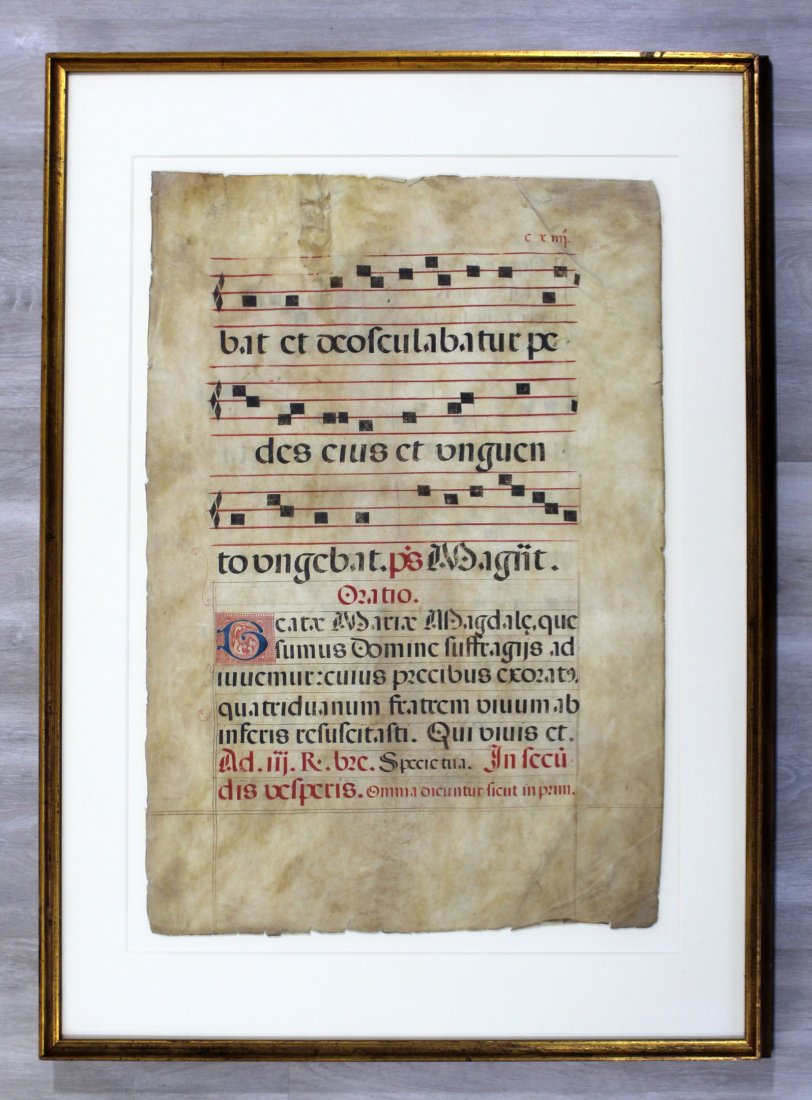 c x iiij.
bat et deosculabatur pe
des eius et vnguen
to vngebat. ps Magnt.
Oratio.
Beatæ Mariæ Magdalę, que
sumus Domine suffragijs ad
iuuemur: cuius precibus exoratꝰ,
quatriduanum fratrem viuum ab
inferis resuscitasti. Qui viuis et.
Ad. iij. R. bre. Specie tua. In secũ
dis vesperis. Omnia dicuntur sicut in prim.